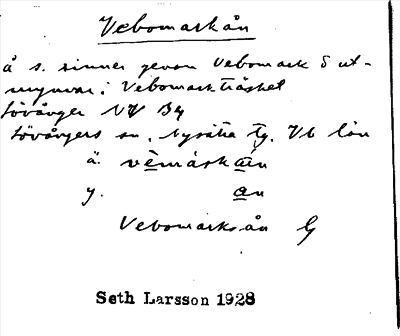 Vebomarkån
å s. rinner genom Vebomark o ut-
mynnar i Vebomarkträsket
Lövånger NV By
Lövångers sn, Nysätra tg. Vb län
ä. vèmárskáin
y. an
Vebomarksån G
Seth Larsson 1928